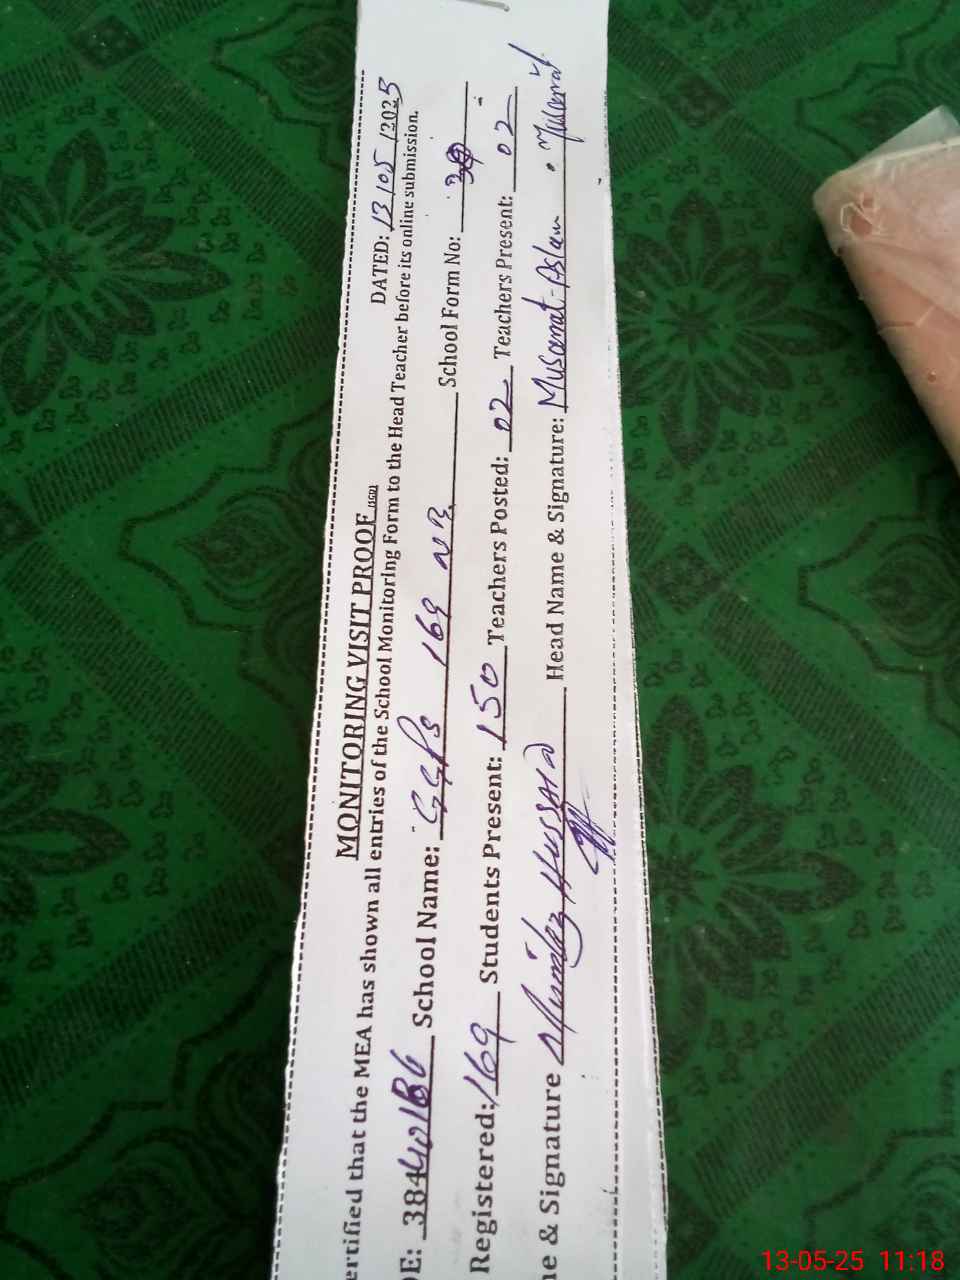 MONITORING VISIT PROOF (SCD)
DATED: 13/05/2025
ertified that the MEA has shown all entries of the School Monitoring Form to the Head Teacher before its online submission.
DE: 384 School Name: GGPS 169 NB School Form No:
Registered: 169 Students Present: 150 Teachers Posted: 02 Teachers Present: 02
ne & Signature Hussain Head Name & Signature: Musarat Aslam
13-05-25 11:18